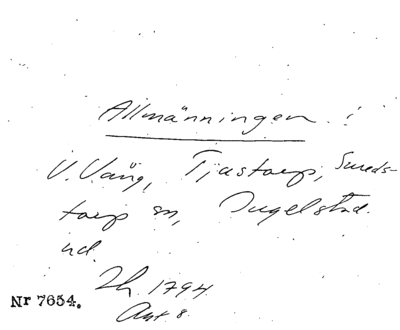 Allmänningen :
V. Vång, Tjustorp, Smeds-
torp sn, Ingelstad.
hd.
Lh. 1794
Akt 8.
Nr 7654.